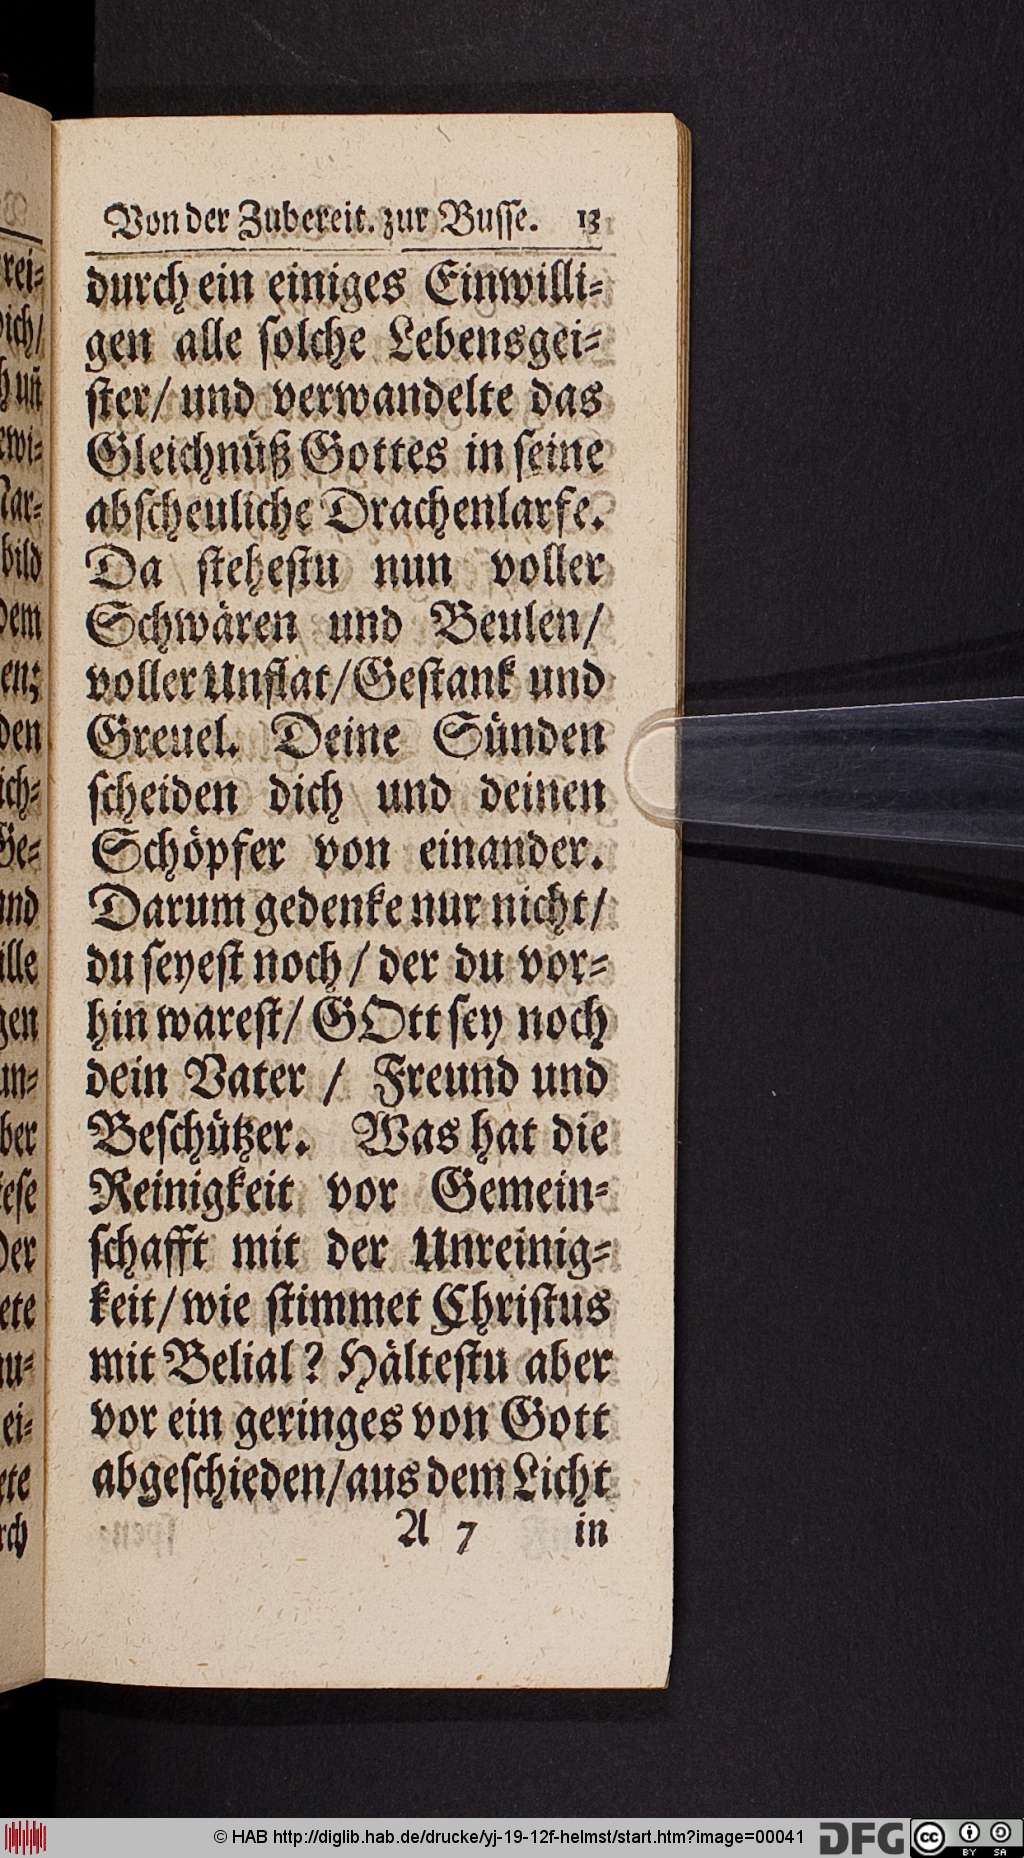 Von der Zubereit. zur Busse. 13
durch ein einiges Einwilli-
gen alle solche Lebensgei-
ster/ und verwandelte das
Gleichnüß Gottes in seine
abscheuliche Drachenlarfe.
Da stehestu nun voller
Schwären und Beulen/
voller Unflat/Gestank und
Greuel. Deine Sünden
scheiden dich und deinen
Schöpfer von einander.
Darum gedenke nur nicht/
du seyest noch/ der du vor-
hin warest/ GOtt sey noch
dein Vater / Freund und
Beschützer. Was hat die
Reinigkeit vor Gemein-
schafft mit der Unreinig-
keit/wie stimmet Christus
mit Belial? Hältestu aber
vor ein geringes von Gott
abgeschieden/aus dem Licht
A 7 in
© HAB http://diglib.hab.de/drucke/yj-19-12f-helmst/start.htm?image=00041
DFG
cc BY SA